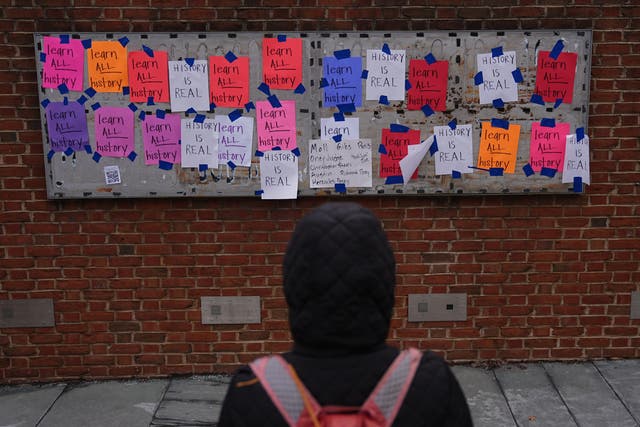 learn
ALL
history
learn
ALL
history
learn
ALL
history
HISTORY
IS
REAL
learn
ALL
history
learn
ALL
history
learn
ALL
history
HISTORY
IS
REAL
learn
ALL
history
HISTORY
IS
REAL
learn
ALL
history
learn
ALL
history
learn
ALL
history
learn
ALL
history
HISTORY
IS
REAL
learn
ALL
history
learn
ALL
history
HISTORY
IS REAL
learn
Moll Giles Paris
Oney Judge
Austin
Hercules Posey
learn
ALL
history
HISTORY
IS
REAL
learn
ALL
history
learn
ALL
history
HISTORY
IS
REAL